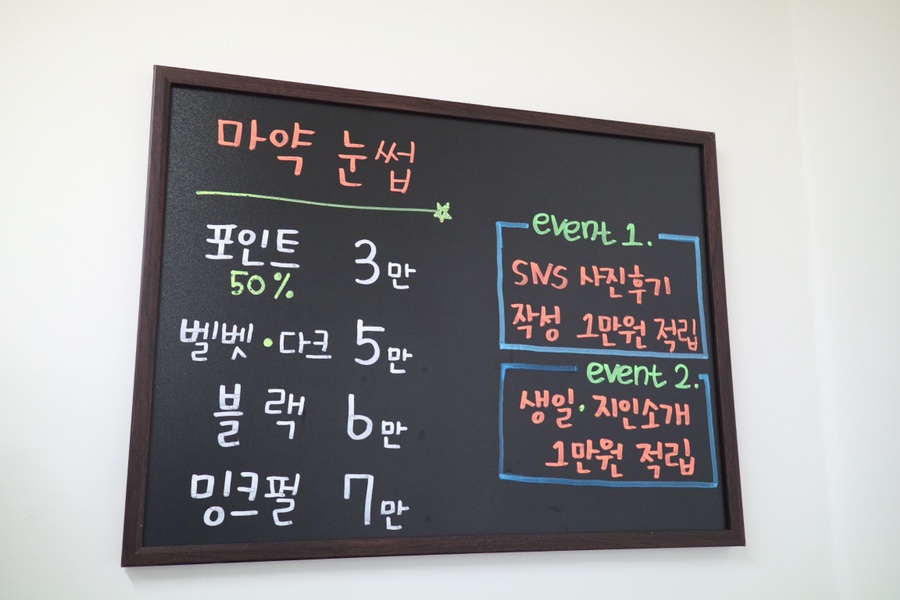 마약 눈썹
포인트 3만
50%
벨벳·다크 5만
블랙 6만
밍크펄 7만
event 1.
SNS 사진후기
작성 1만원 적립
event 2.
생일·지인소개
1만원 적립